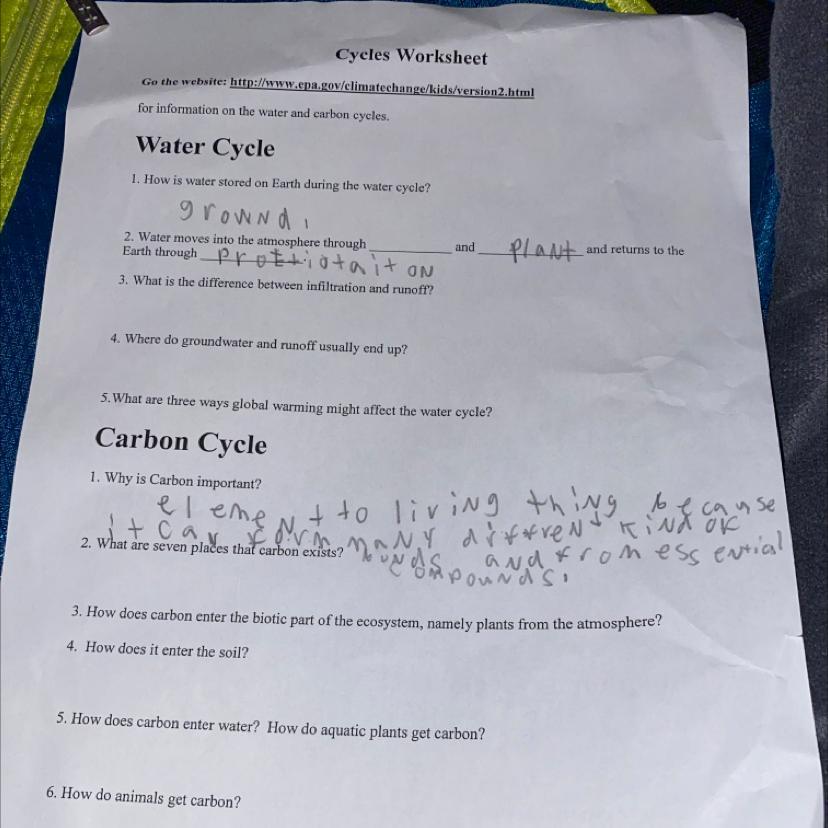 Cycles Worksheet
Go the website: http://www.epa.gov/climatechange/kids/version2.html
for information on the water and carbon cycles.
Water Cycle
1. How is water stored on Earth during the water cycle?
grownd.
2. Water moves into the atmosphere through __________ and plant and returns to the
Earth through
3. What is the difference between infiltration and runoff?
4. Where do groundwater and runoff usually end up?
5.What are three ways global warming might affect the water cycle?
Carbon Cycle
1. Why is Carbon important?
element to living thing because
it can form many diffrent kind of
2. What are seven places that carbon exists?
and from essential
compounds.
3. How does carbon enter the biotic part of the ecosystem, namely plants from the atmosphere?
4. How does it enter the soil?
5. How does carbon enter water? How do aquatic plants get carbon?
6. How do animals get carbon?